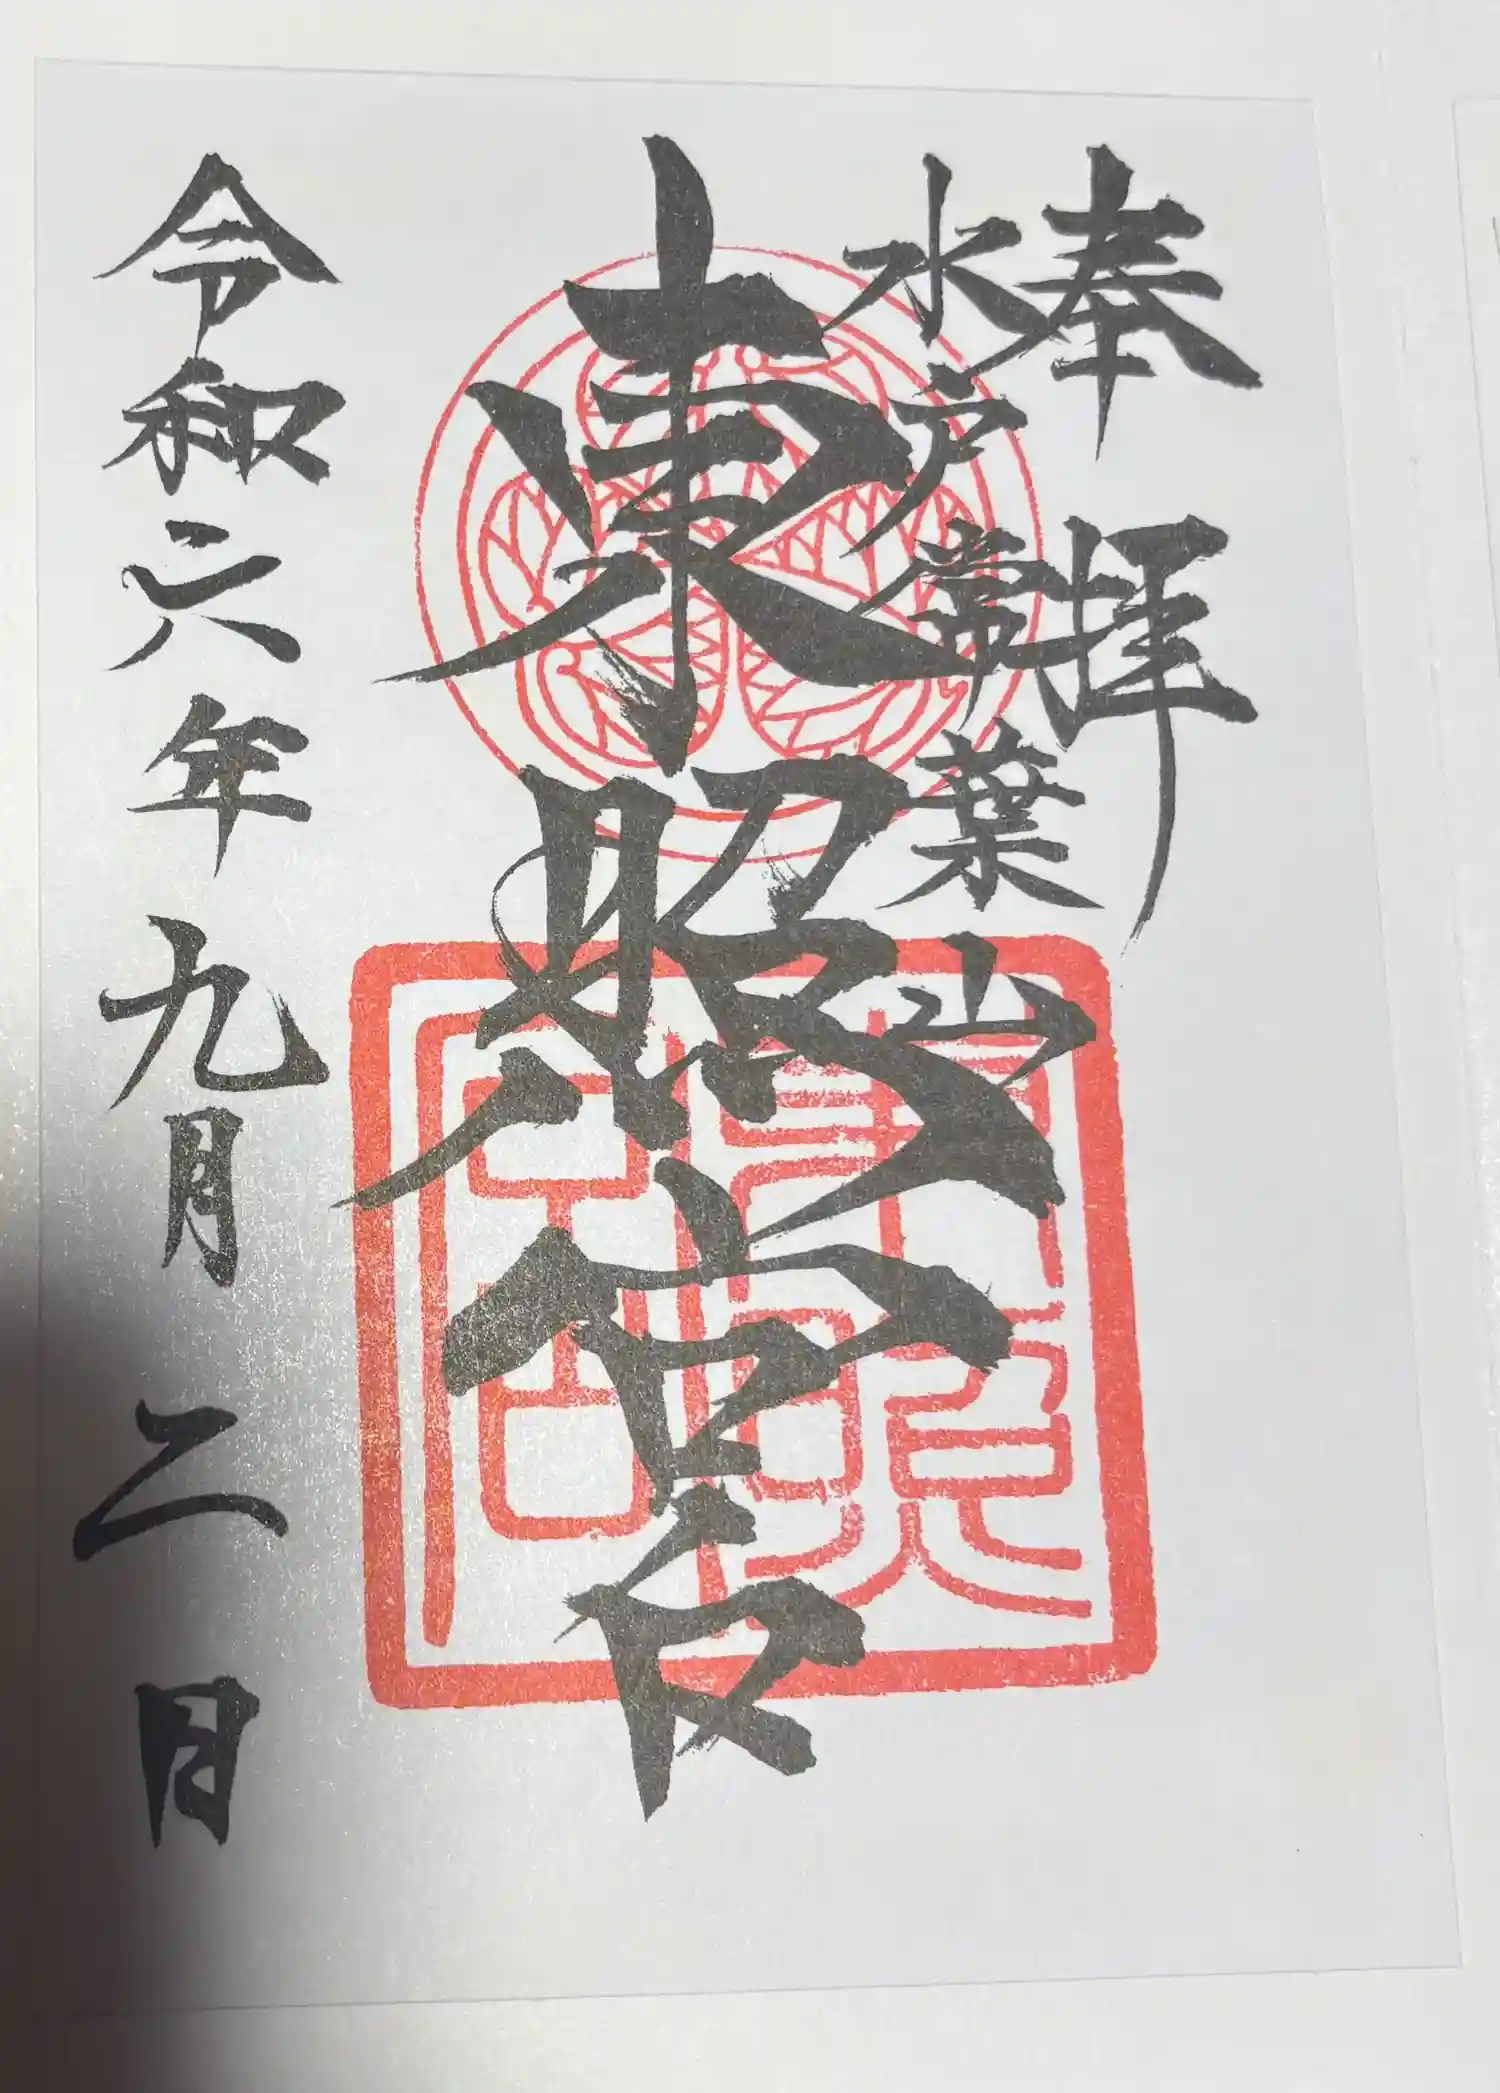 奉拝
水戸常葉山
東照宮
東照宮
令和六年九月二日